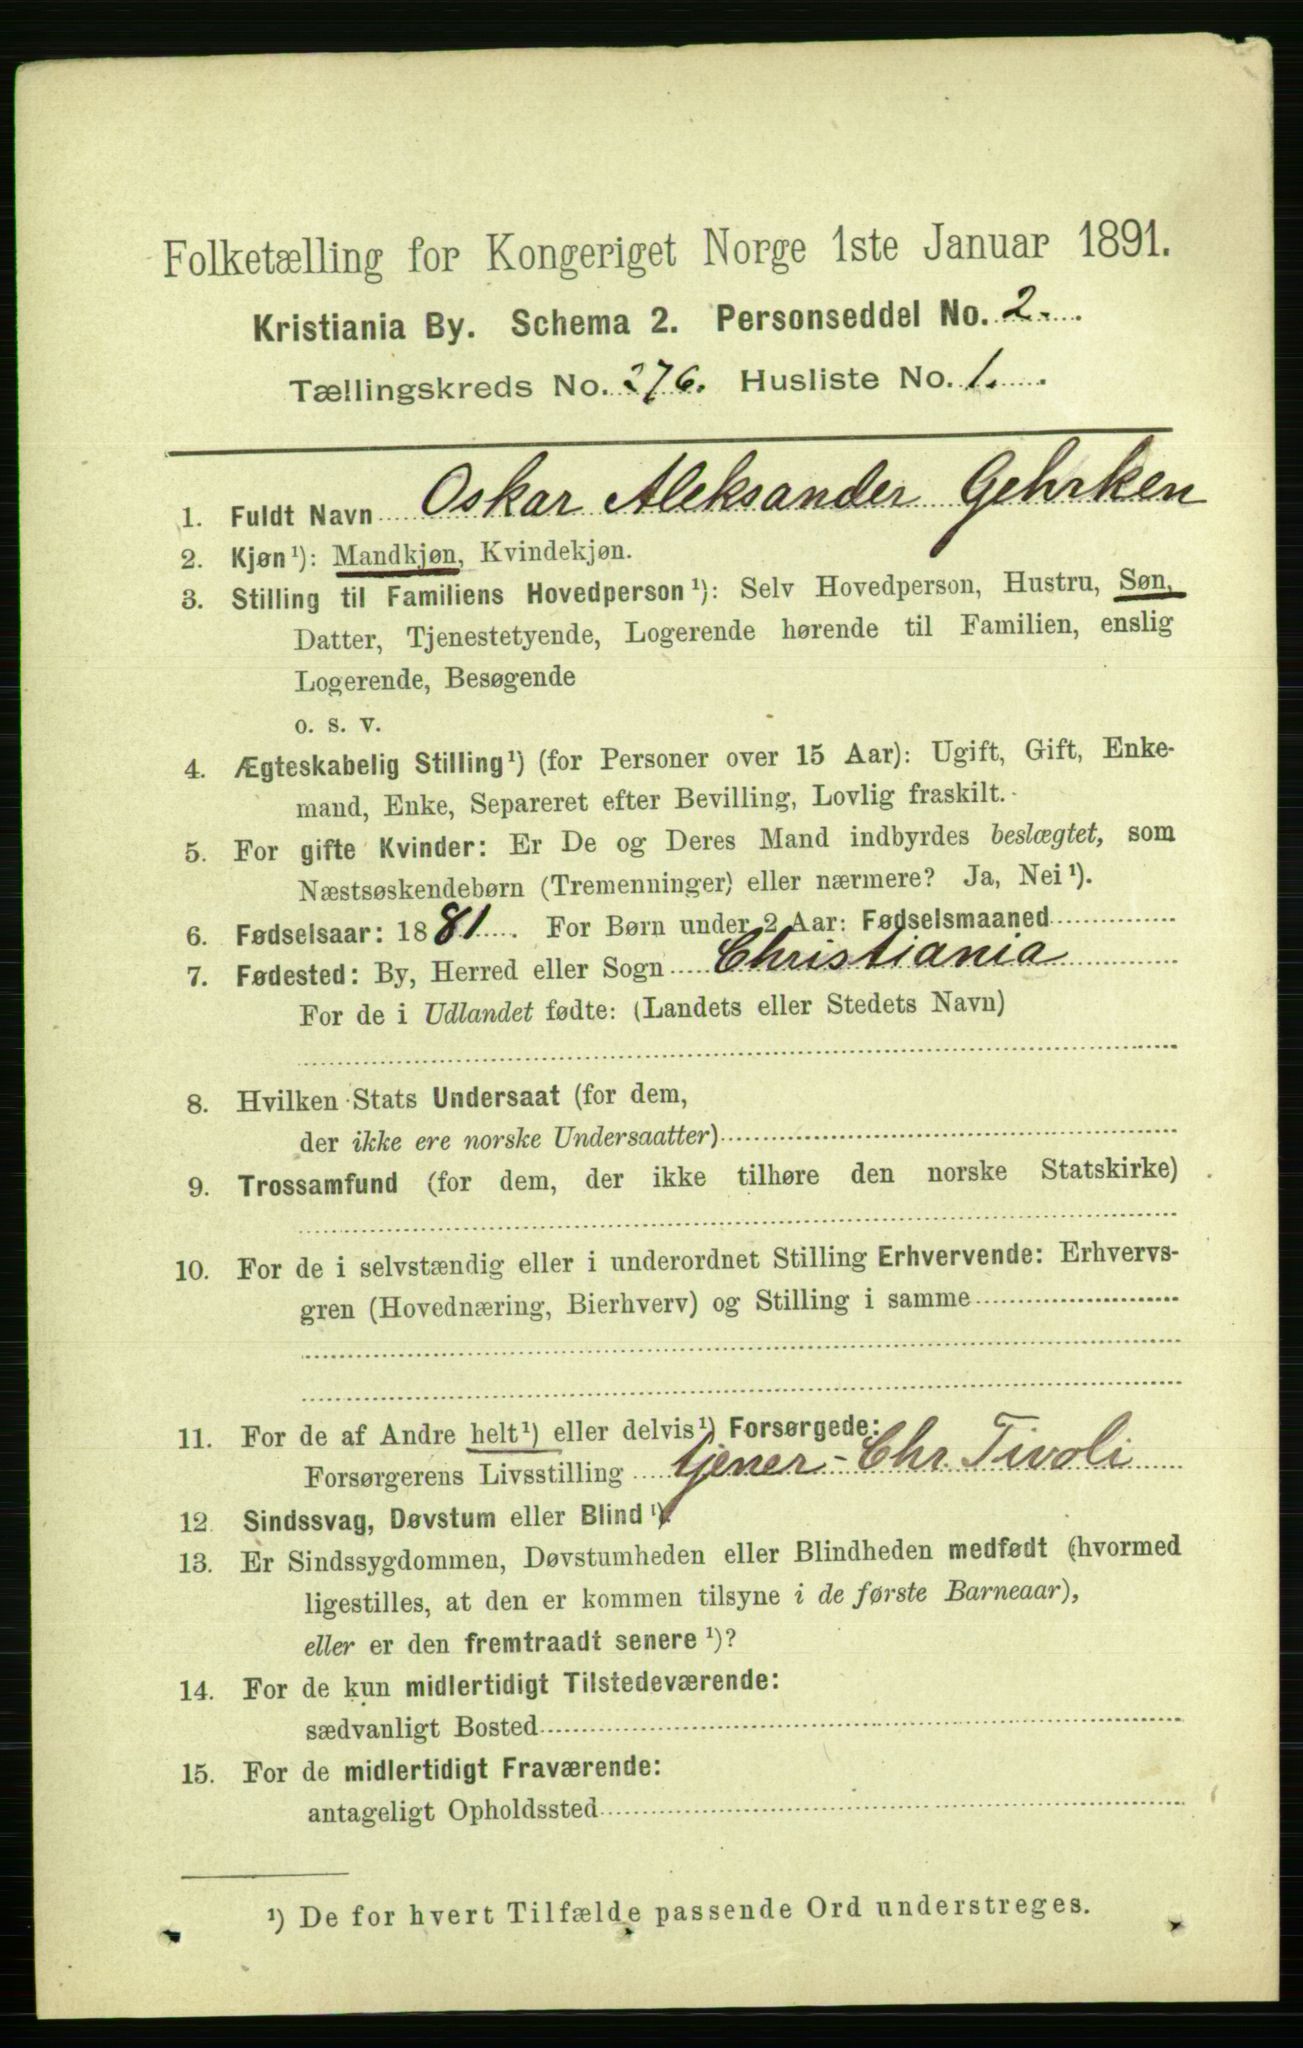 Folketælling for Kongeriget Norge 1ste Januar 1891.
Kristiania By. Schema 2. Personseddel No. 2.
Tællingskreds No. 276. Husliste No. 1.
1. Fuldt Navn Oskar Aleksander Gehrken
2. Kjøn¹): Mandkjøn, Kvindekjøn.
3. Stilling til Familiens Hovedperson¹): Selv Hovedperson, Hustru, Søn,
Datter, Tjenestetyende, Logerende hørende til Familien, enslig
Logerende, Besøgende
o. s. v.
4. Ægteskabelig Stilling¹) (for Personer over 15 Aar): Ugift, Gift, Enke-
mand, Enke, Separeret efter Bevilling, Lovlig fraskilt.
5. For gifte Kvinder: Er De og Deres Mand indbyrdes beslægtet, som
Næstsøskendebørn (Tremenninger) eller nærmere? Ja, Nei¹).
6. Fødselsaar: 1881. For Børn under 2 Aar: Fødselsmaaned
7. Fødested: By, Herred eller Sogn Christiania
For de i Udlandet fødte: (Landets eller Stedets Navn)
8. Hvilken Stats Undersaat (for dem,
der ikke ere norske Undersaatter)
9. Trossamfund (for dem, der ikke tilhøre den norske Statskirke)
10. For de i selvstændig eller i underordnet Stilling Erhvervende: Erhvervs-
gren (Hovednæring, Bierhverv) og Stilling i samme
11. For de af Andre helt¹) eller delvis¹) Forsørgede:
Forsørgerens Livsstilling tjener - Chr. Tivoli
12. Sindssvag, Døvstum eller Blind¹).
13. Er Sindssygdommen, Døvstumheden eller Blindheden medfødt (hvormed
ligestilles, at den er kommen tilsyne i de første Barneaar),
eller er den fremtraadt senere¹)?
14. For de kun midlertidigt Tilstedeværende:
sædvanligt Bosted
15. For de midlertidigt Fraværende:
antageligt Opholdssted
¹) De for hvert Tilfælde passende Ord understreges.